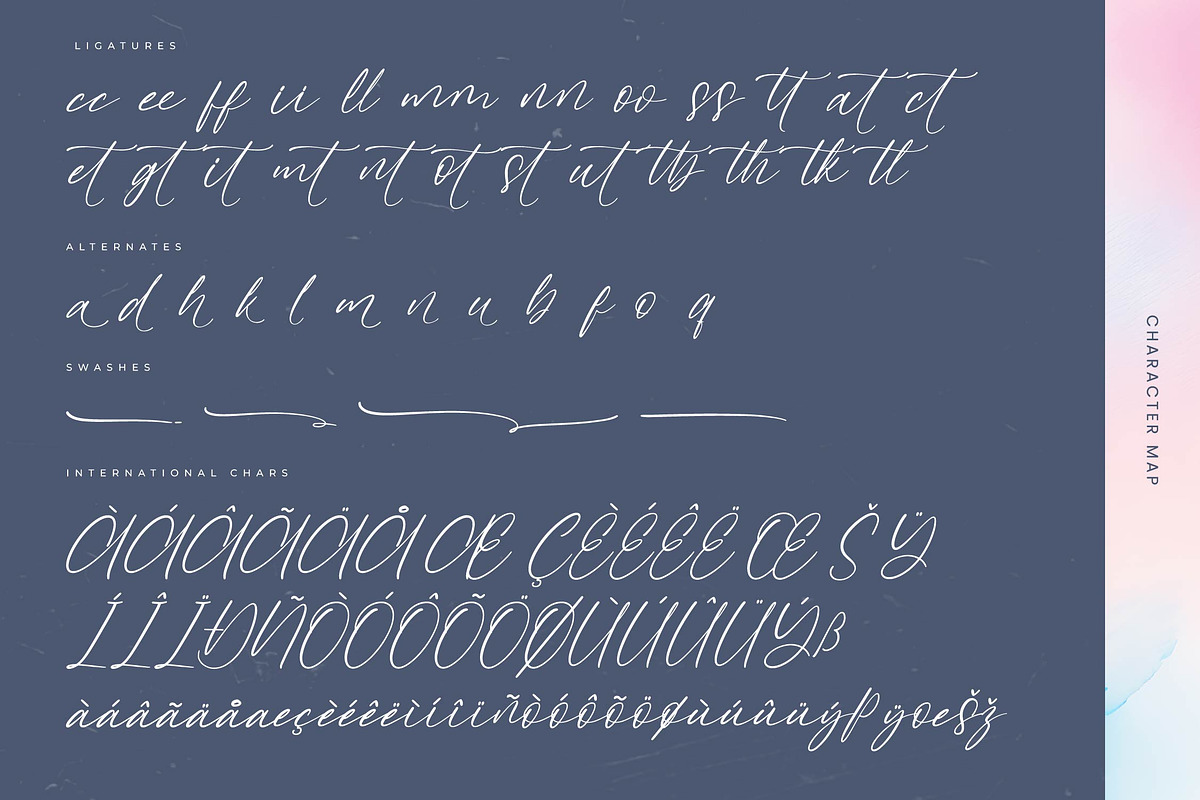 LIGATURES
cc ee ff ii ll mm nn oo ss tt at ct
et gt it mt nt ot st ut ttb th tk tl
ALTERNATES
a d h k l m n u b f o q
SWASHES
INTERNATIONAL CHARS
ÀÁÂÃÄÅ Æ ÇÈÉÊË Œ Š Ÿ
ÍÎÏÐÑÒÓÔÕÖØÙÚÛÜÝß
àáâãäåæçèéêëìíîïñòóôõöøùúûüýþ ÿœšž
CHARACTER MAP